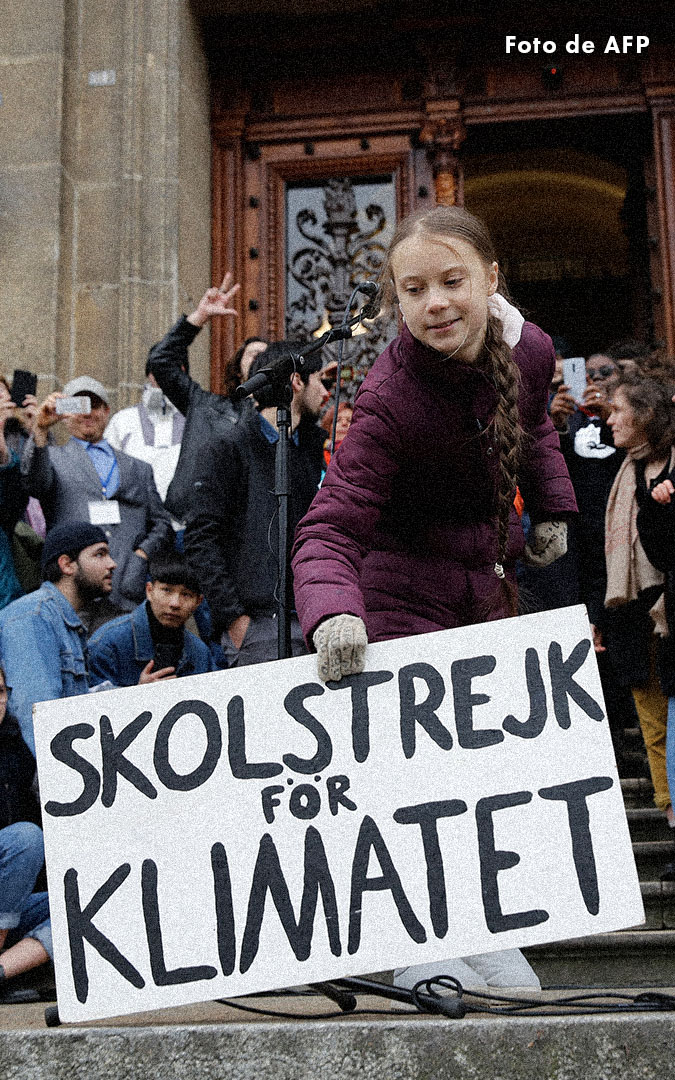 Foto de AFP
SKOLSTREJK
FÖR
KLIMATET